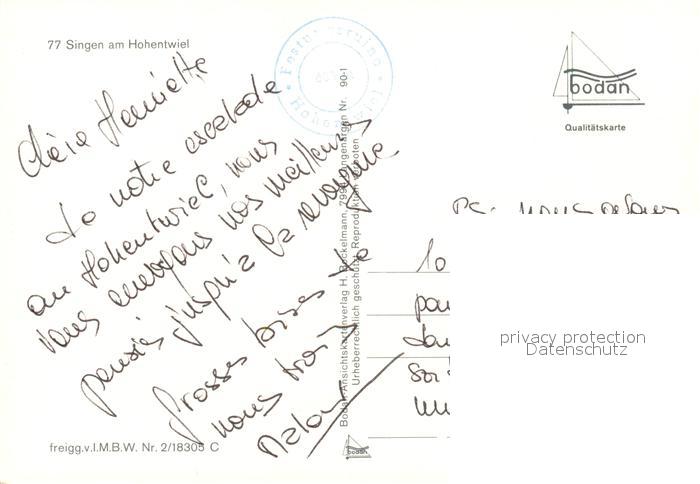 77 Singen am Hohentwiel
Chère Henriette
De notre escalade
au Hohentwiel, nous
vous envoyons nos meilleures
pensées jusqu'à la
Grosses bises de
nous trois
Festungsruine
Hohentwiel
bodan
Qualitätskarte
Bodan-Ansichtskartenverlag H. Bockelmann, Langenargen Nr. 90-1
Urheberrechtlich geschützt. Reproduktion verboten
privacy protection
Datenschutz
freigg.v.I.M.B.W. Nr. 2/18305 C
bodan